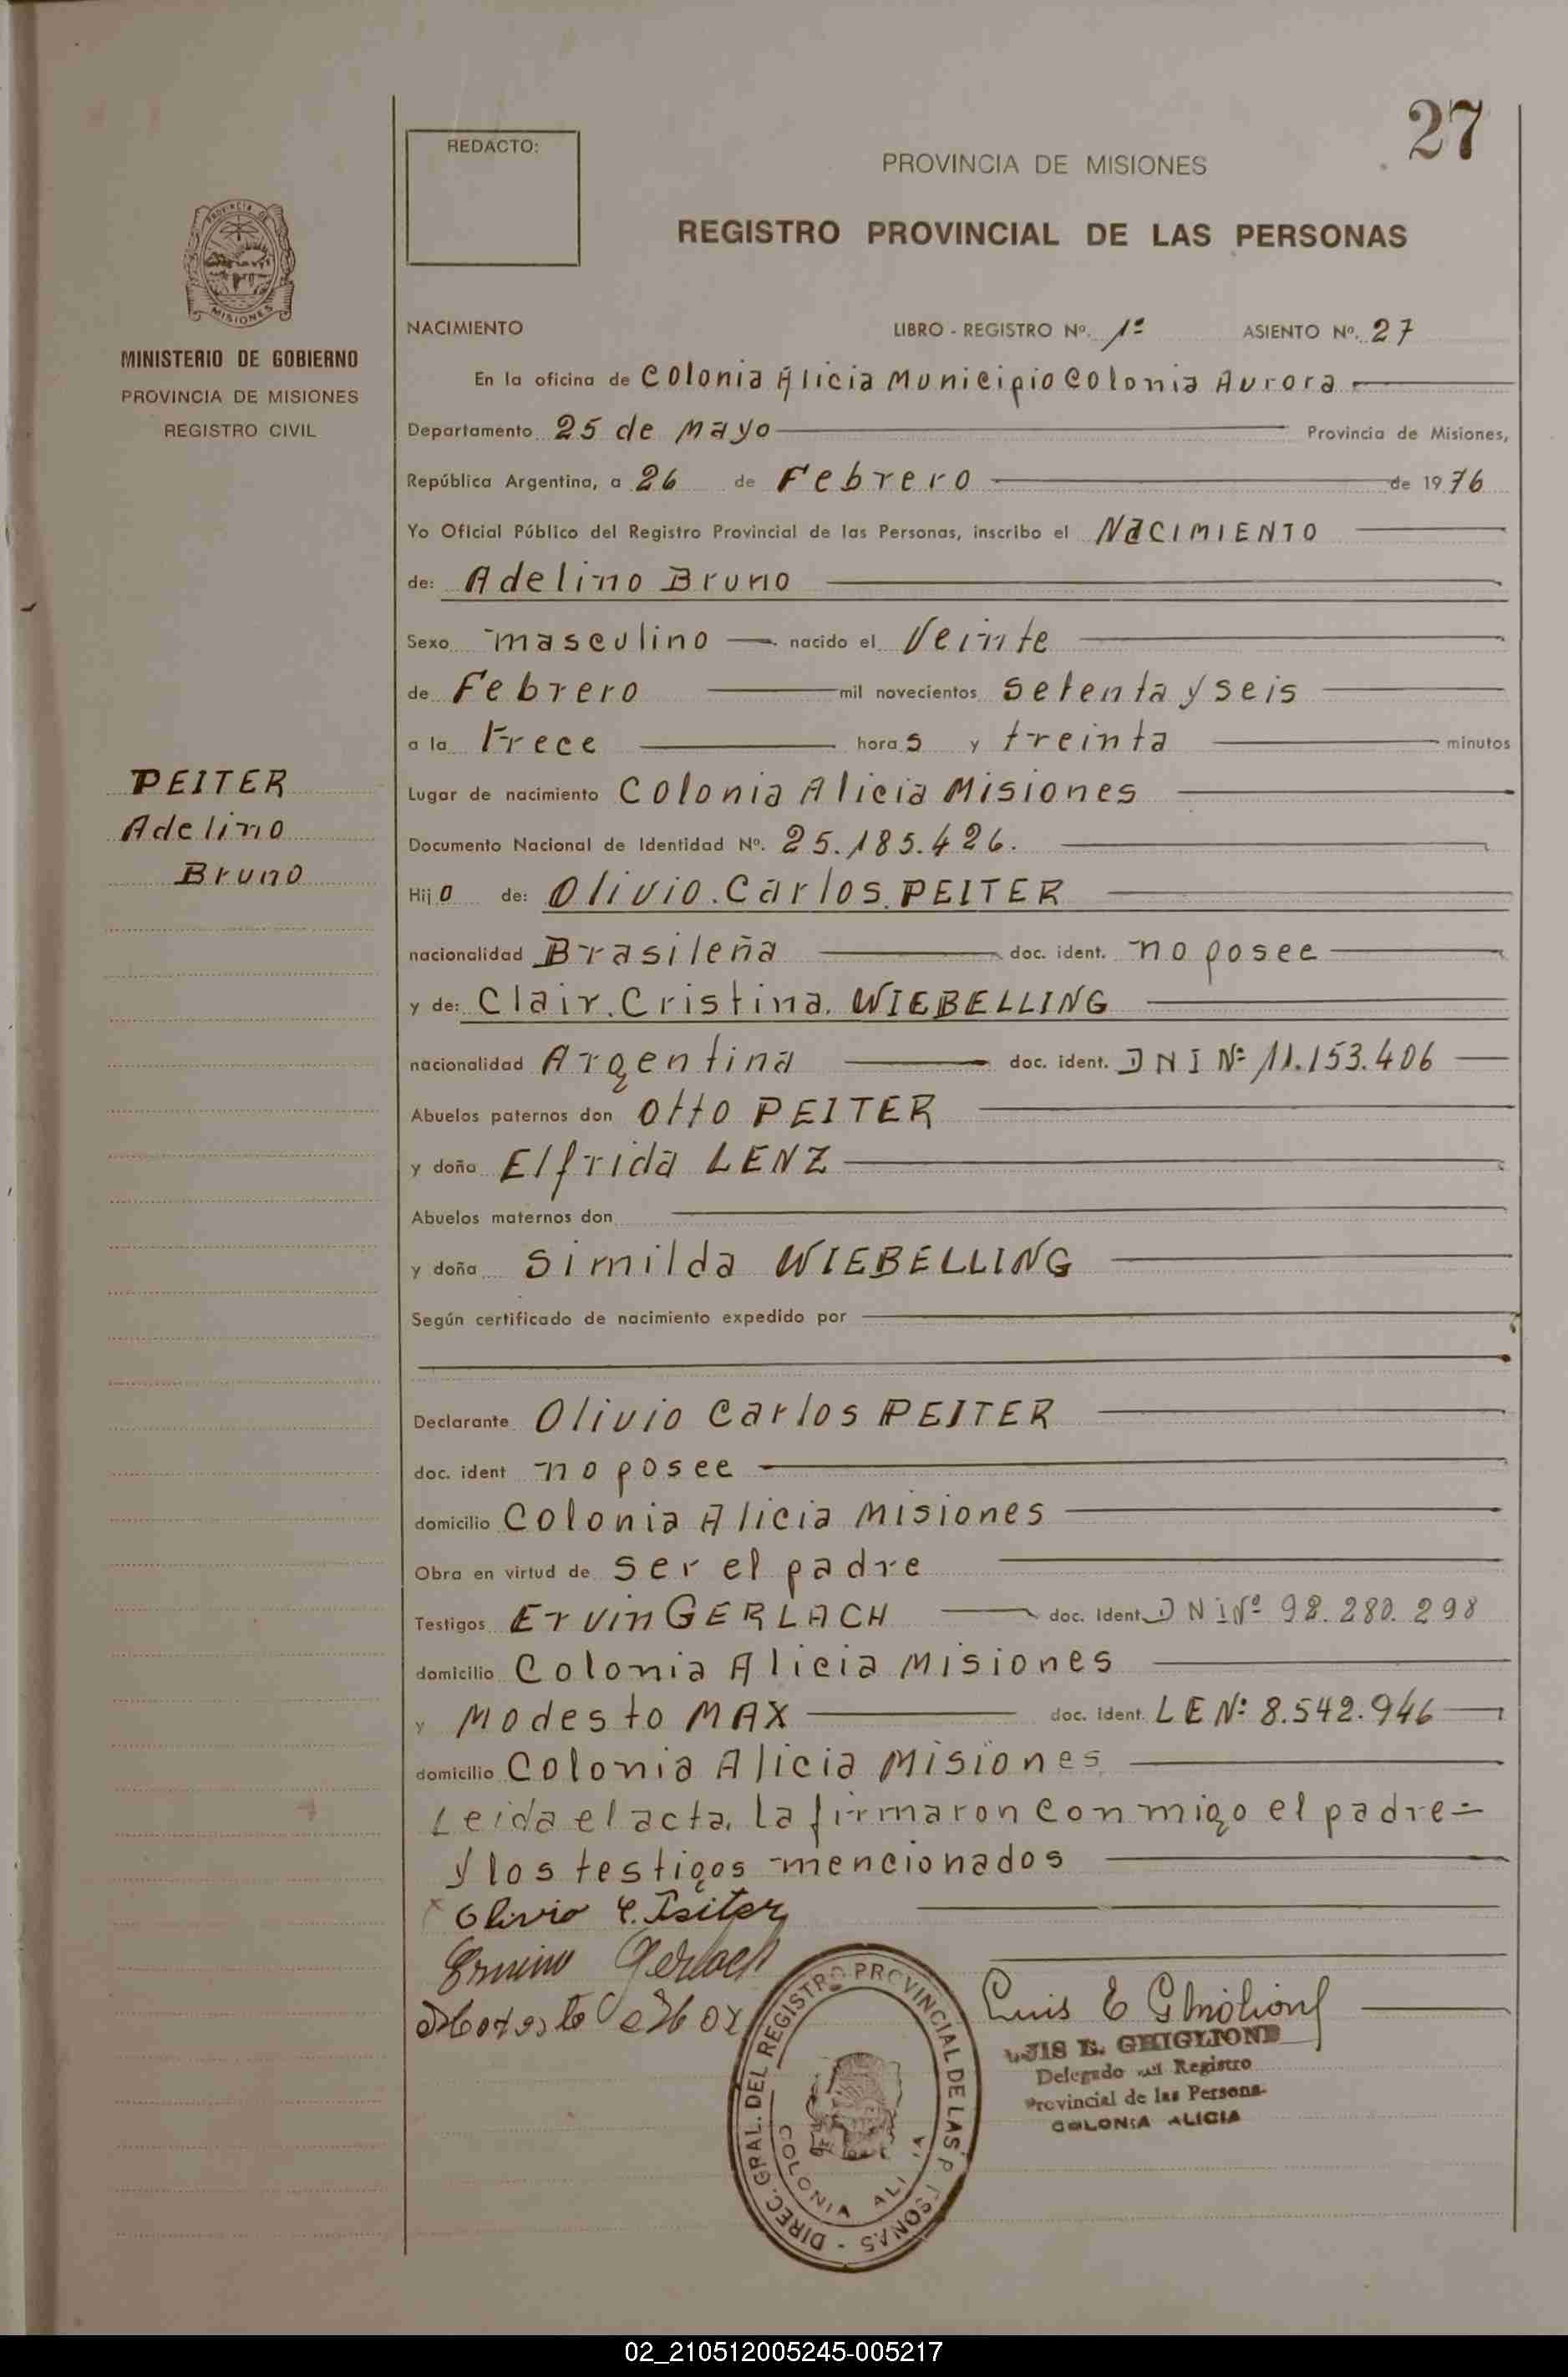 27
REDACTO:
PROVINCIA DE MISIONES
REGISTRO PROVINCIAL DE LAS PERSONAS
PROVINCIA DE
MISIONES
MINISTERIO DE GOBIERNO
PROVINCIA DE MISIONES
REGISTRO CIVIL
NACIMIENTO LIBRO - REGISTRO Nº. 1º ASIENTO Nº. 27
En la oficina de Colonia Alicia Municipio Colonia Aurora
Departamento 25 de Mayo Provincia de Misiones,
República Argentina, a 26 de Febrero de 1976
Yo Oficial Público del Registro Provincial de las Personas, inscribo el NACIMIENTO
de: Adelino Bruno
Sexo masculino nacido el Veinte
de Febrero mil novecientos setenta y seis
a la trece horas y treinta minutos
PEITER
Adelino
Bruno
Lugar de nacimiento Colonia Alicia Misiones
Documento Nacional de Identidad Nº. 25.185.426.
Hijo de: Olivio. Carlos. PEITER
nacionalidad Brasileña doc. ident. no posee
y de: Clair. Cristina. WIEBELLING
nacionalidad Argentina doc. ident. DNI Nº 11.153.406
Abuelos paternos don Otto PEITER
y doña Elfrida LENZ
Abuelos maternos don
y doña Similda WIEBELLING
Según certificado de nacimiento expedido por
Declarante Olivio Carlos PEITER
doc. ident no posee
domicilio Colonia Alicia Misiones
Obra en virtud de ser el padre
Testigos Ervin GERLACH doc. Ident. DNI Nº 98.280.298
domicilio Colonia Alicia Misiones
y Modesto MAX doc. Ident. LE Nº 8.542.946
domicilio Colonia Alicia Misiones
Leida el acta, la firmaron conmigo el padre
y los testigos mencionados
Olivio C. Peiter
Gerlach
Luis E Ghiglione
LUIS E. GHIGLIONE
Delegado del Registro
Provincial de las Persona
COLONIA ALICIA
DIREC. GRAL. DEL REGISTRO PROVINCIAL DE LAS PERSONAS -
COLONIA ALICIA
02_210512005245-005217